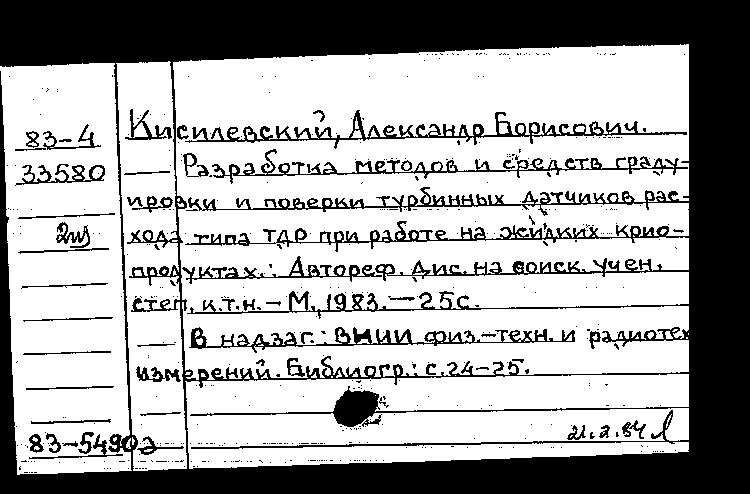 Кисилевский, Александр Борисович.
83-4
33580
2из
Разработка методов и средств граду-
ировки и поверки турбинных датчиков рас-
хода типа ТДР при работе на жидких крио-
продуктах.: Автореф. дис. на соиск. учен.
степ. к.т.н. – М., 1983. – 25с.
В надзаг.: ВНИИ физ.-техн. и радиотех
измерений. Библиогр.: с.24-25.
83-5490э
21.2.84